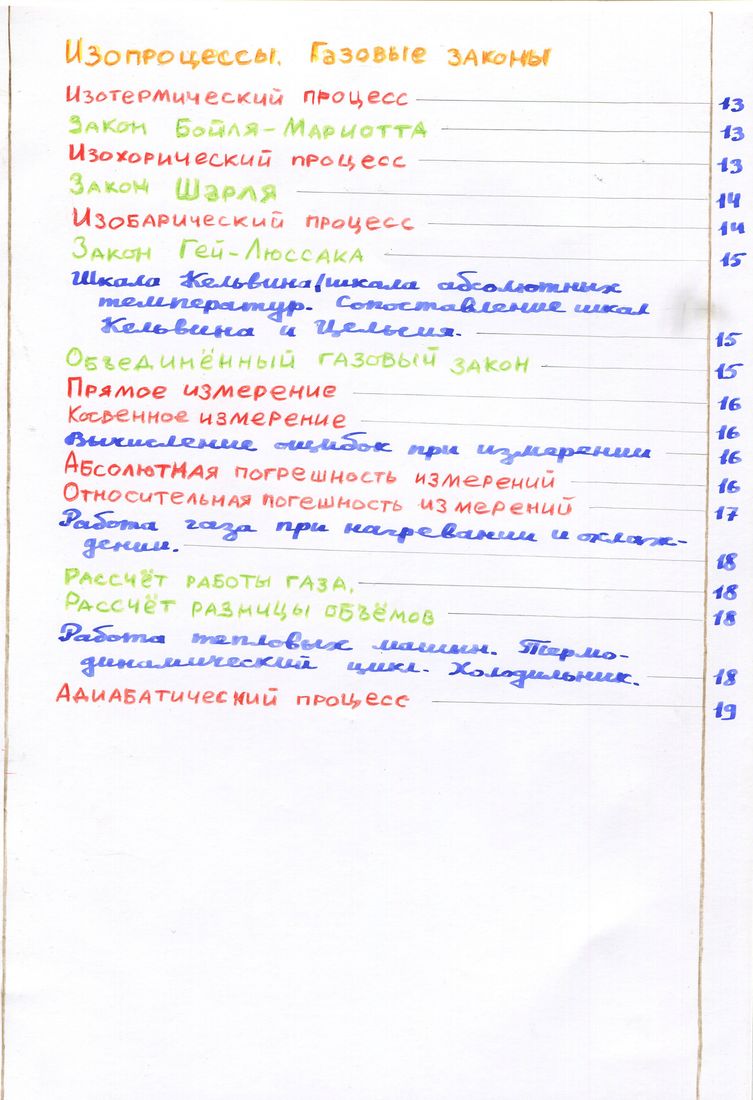 Изопроцессы. Газовые законы
Изотермический процесс 13
Закон Бойля-Мариотта 13
Изохорический процесс 13
Закон Шарля 14
Изобарический процесс 14
Закон Гей-Люссака 15
Шкала Кельвина/шкала абсолютных
температур. Сопоставление шкал
Кельвина и Цельсия. 15
Объединённый газовый закон 15
Прямое измерение 16
Косвенное измерение 16
Вычисление ошибок при измерении 16
Абсолютная погрешность измерений 16
Относительная погешность измерений 17
Работа газа при нагревании и охлаж-
дении. 18
Рассчёт работы газа. 18
Рассчёт разницы объёмов 18
Работа тепловых машин. Термо-
динамический цикл. Холодильник. 18
Адиабатический процесс 19